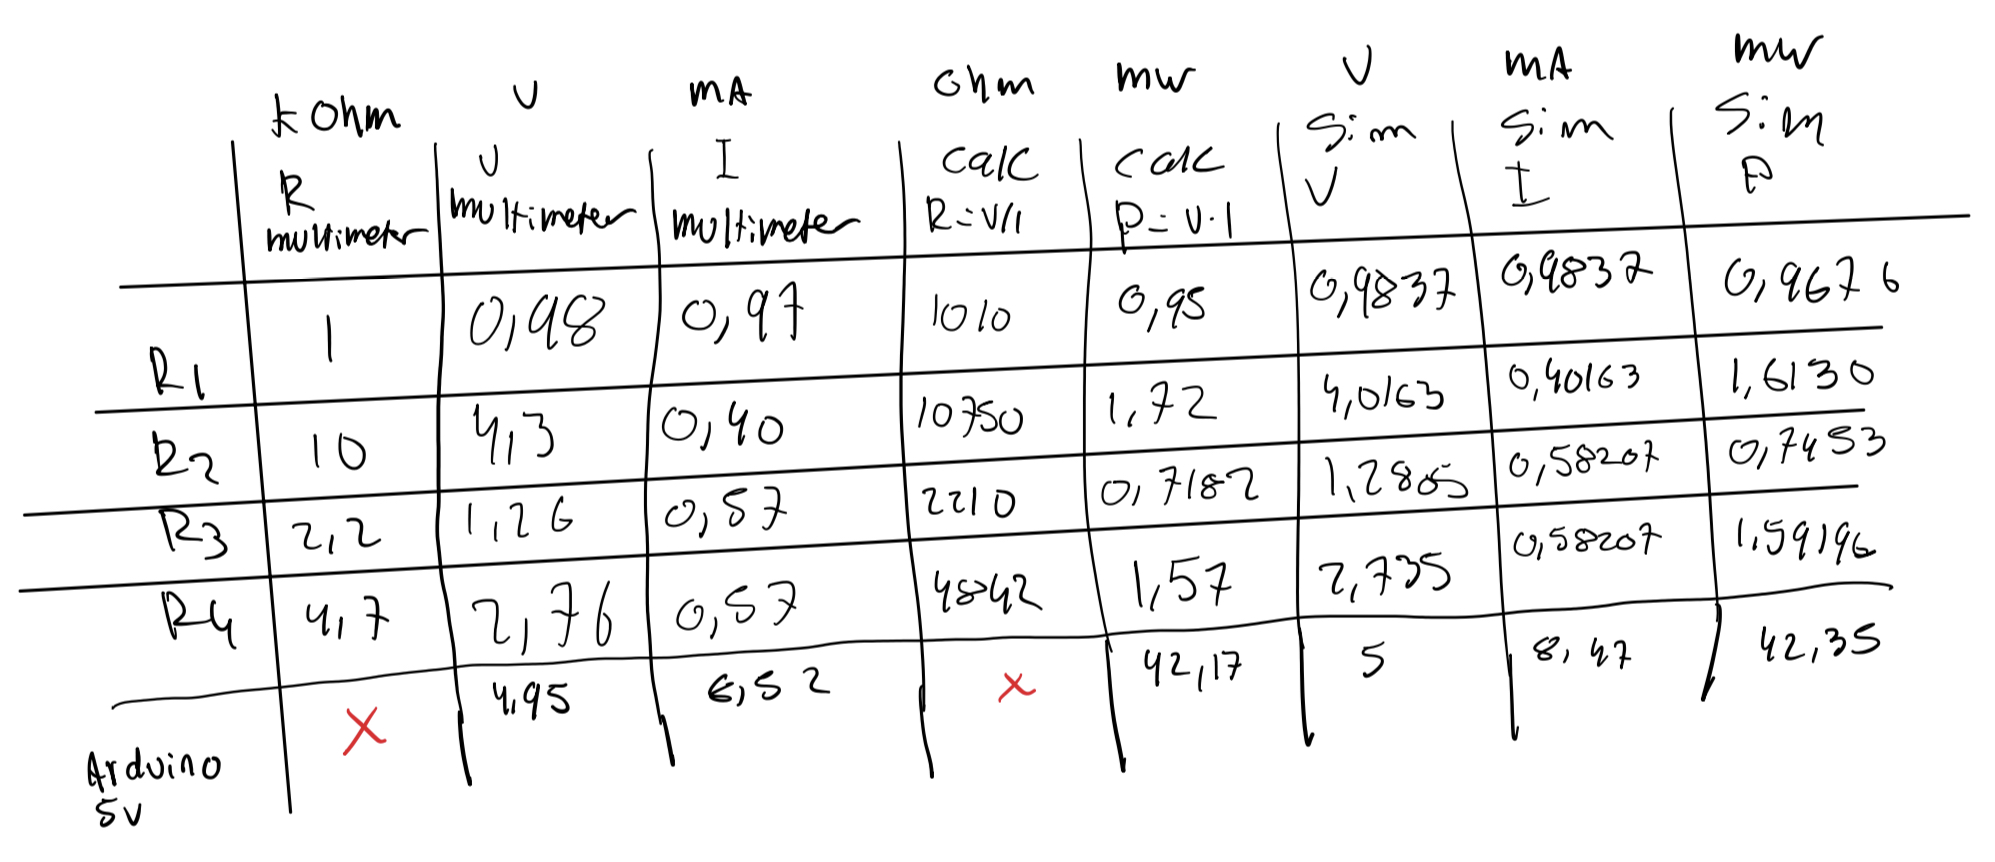 k ohm V mA Ohm mW V mA mW
R multimeter V multimeter I multimeter calc R=V/I calc P=V·I Sim V Sim I Sim P
R1 1 0,98 0,97 1010 0,95 0,9837 0,9837 0,9676
R2 10 4,3 0,40 10750 1,72 4,0163 0,40163 1,6130
R3 2,2 1,26 0,57 2210 0,7182 1,2805 0,58207 0,7453
R4 4,7 2,76 0,57 4842 1,57 2,735 0,58207 1,59196
Arduino 5V X 4,95 8,52 X 42,17 5 8,47 42,35